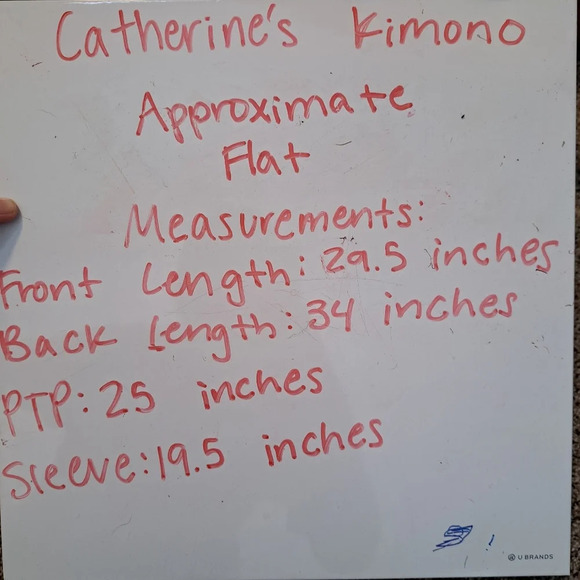 Catherine's Kimono
Approximate
Flat
Measurements:
Front Length: 29.5 inches
Back Length: 34 inches
PTP: 25 inches
Sleeve: 19.5 inches
U BRANDS